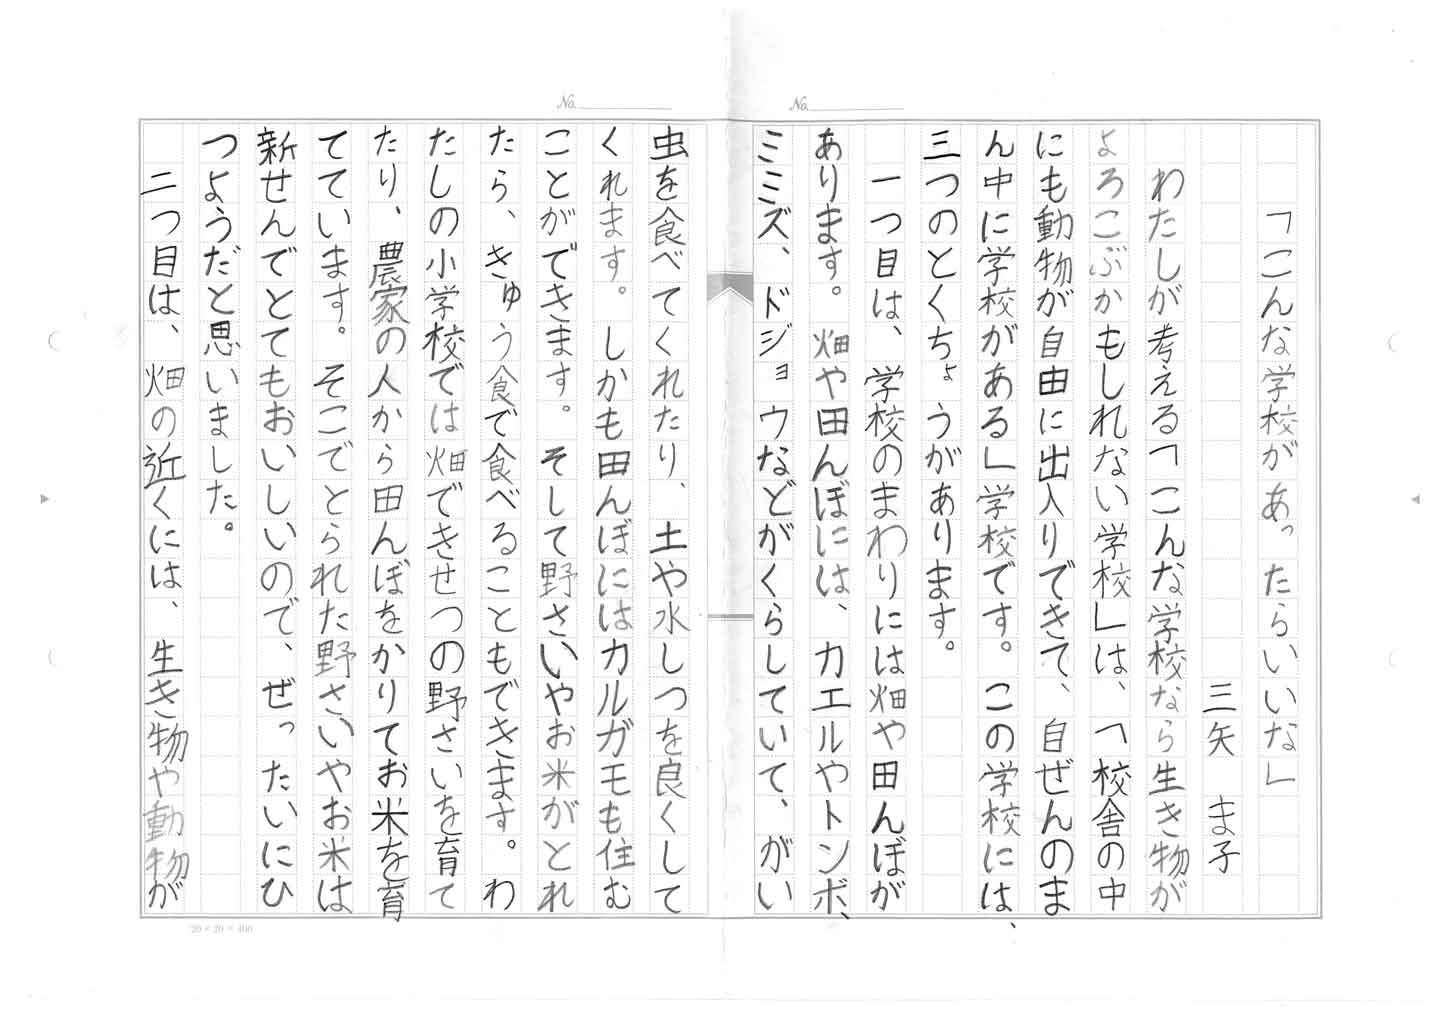 No.
「こんな学校があったらいいな」
三矢 ま子
わたしが考える「こんな学校なら生き物が
よろこぶかもしれない学校」は、「校舎の中
にも動物が自由に出入りできて、自ぜんのま
ん中に学校がある」学校です。この学校には、
三つのとくちょうがあります。
一つ目は、学校のまわりには畑や田んぼが
あります。畑や田んぼには、カエルやトンボ、
ミミズ、ドジョウなどがくらしていて、がい
No.
虫を食べてくれたり、土や水しつを良くして
くれます。しかも田んぼにはカルガモも住む
ことができます。そして野さいやお米がとれ
たら、きゅう食で食べることもできます。わ
たしの小学校では畑できせつの野さいを育て
たり、農家の人から田んぼをかりてお米を育
てています。そこでとられた野さいやお米は
新せんでとてもおいしいので、ぜったいにひ
つようだと思いました。
二つ目は、畑の近くには、生き物や動物が
20×20×400